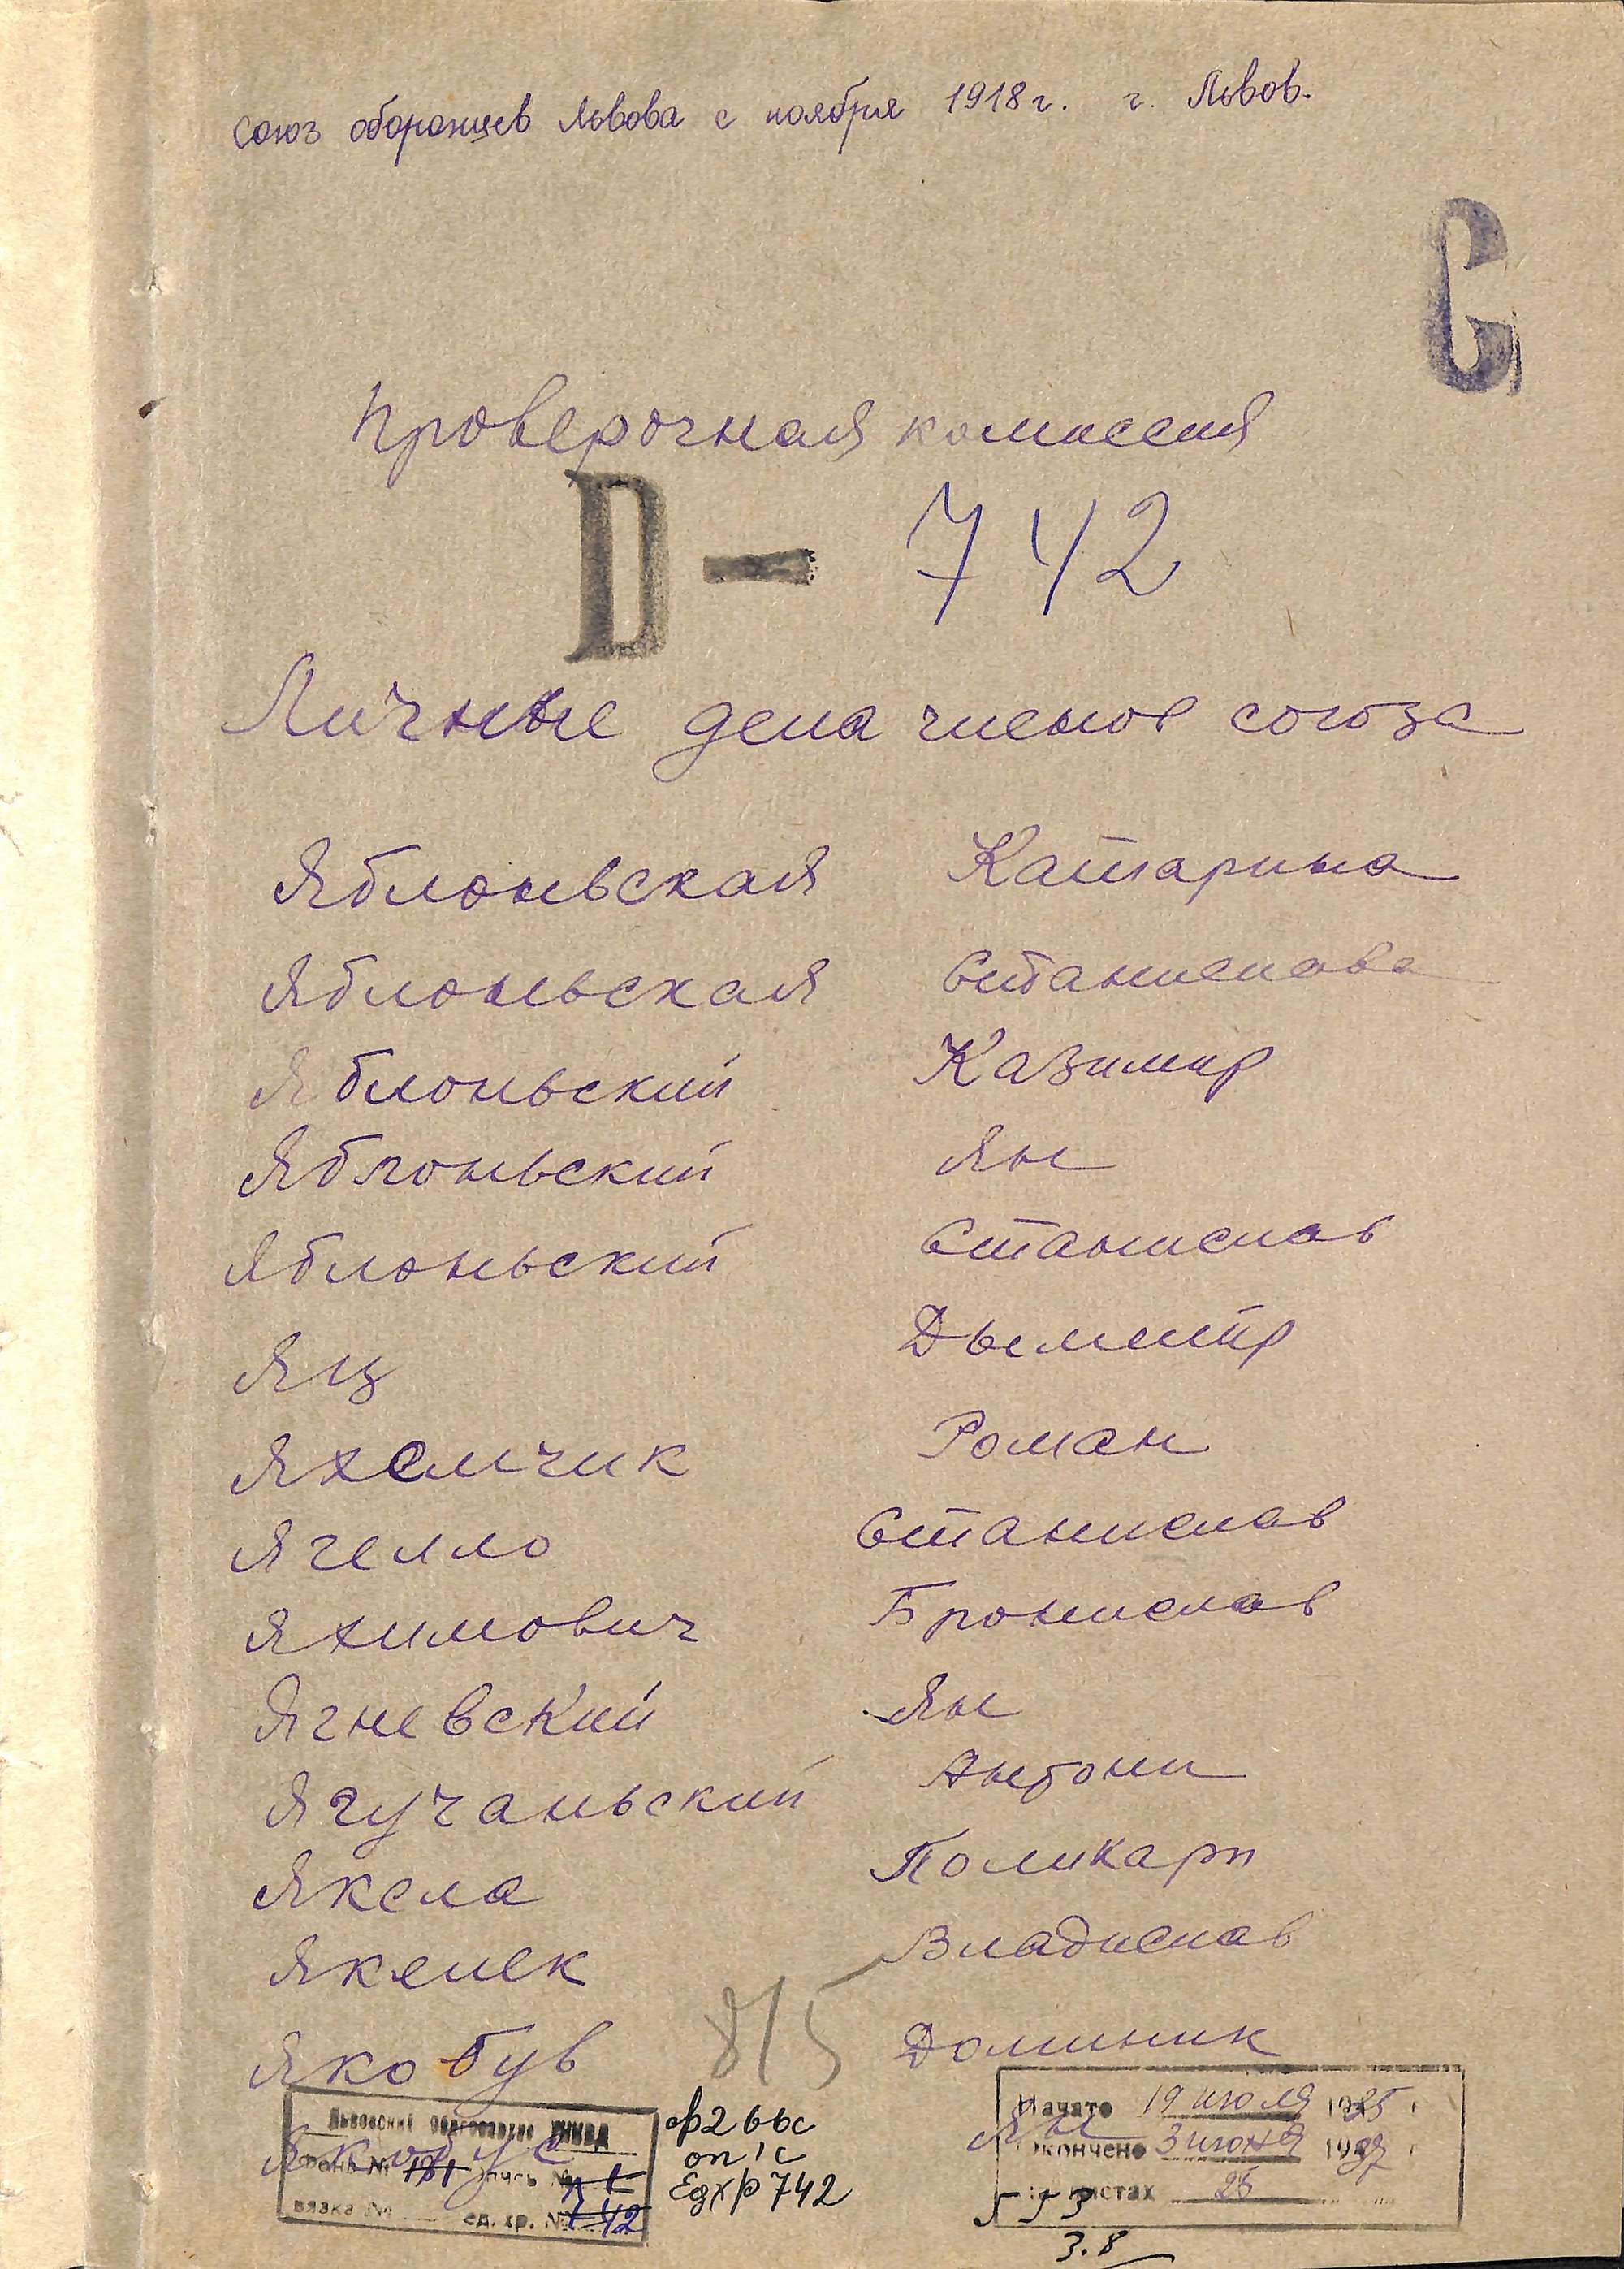 союз оборонцев Львова с ноября 1918 г. г. Львов.
С
Проверочная комиссия
D — 742
Личные дела членов союза
Яблоньская Катарина
Яблоньская Станислава
Яблоньский Казимир
Яблоньский Ян
Яблоньский Станислав
Яц Дымитр
Яхемчик Роман
Ягелло Станислав
Яхимович Бронислав
Ягневский Ян
Ягучаньский Антони
Яксла Поликарп
Якелек Владислав
Якобув Доминик
815
Якобус Ян
Львовский Облгосархив НКВД
Фонд № 181 опись № 1
вязка № ед. хр. № 742
ф266с
оп 1с
Едхр 742
Начато 19 июля 1925 г.
Окончено 3 июня 1937 г.
на листах 25
553
3.8